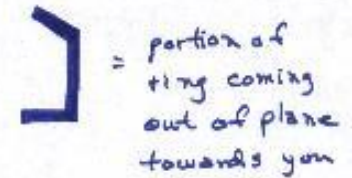 = portion of
ring coming
out of plane
towards you